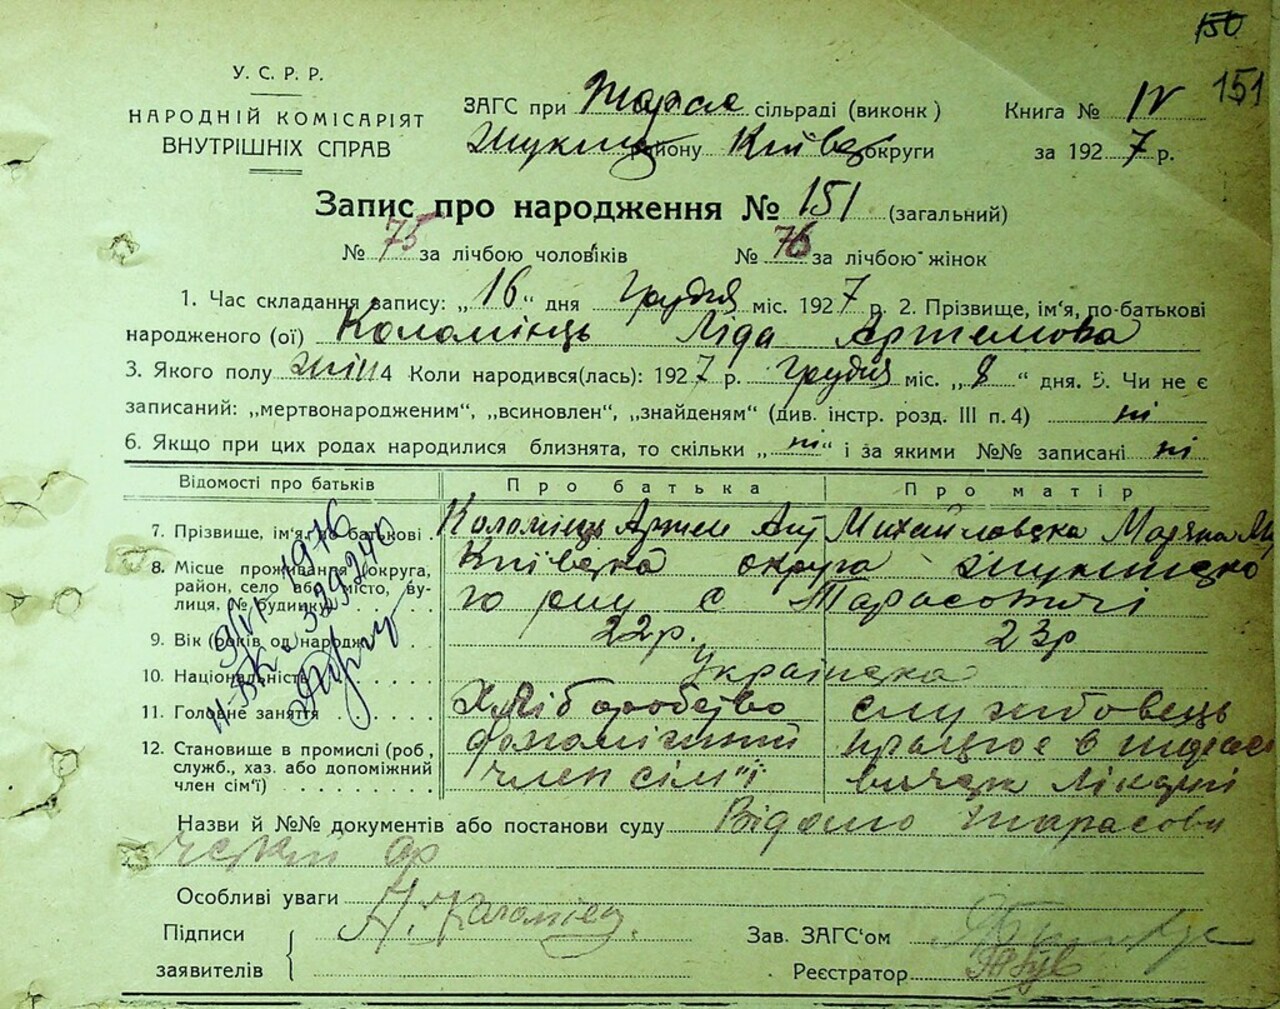 150
151
У. С. Р. Р.
НАРОДНІЙ КОМІСАРІЯТ
ВНУТРІШНІХ СПРАВ
ЗАГС при Тарас сільраді (виконк)
району Київс округи
Книга № IV
за 1927 р.
Запис про народження № 151 (загальний)
№ 75 за лічбою чоловіків № 76 за лічбою жінок
1. Час складання запису: „16“ дня Грудня міс. 1927 р. 2. Прізвище, ім'я, по-батькові
народженого (ої) Коломієць Ліда Артемова
3. Якого полу жін 4 Коли народився(лась): 1927 р. Грудня міс. „8“ дня. 5. Чи не є
записаний: „мертвонародженим“, „всиновлен“, „знайденям“ (див. інстр. розд. III п. 4) ні
6. Якщо при цих родах народилися близнята, то скільки „ні“ і за якими №№ записані ні
Відомості про батьків Про батька Про матір
7. Прізвище, ім'я, по батькові Коломієць Артем Михайловська
8. Місце проживання (округа, район, село або місто, вулиця, № будинку) Київська округа
го рну с Тарасовичі
9. Вік (років од народж.) 22р. 23р
10. Національність Українська
11. Головне заняття Хліборобство службовець
12. Становище в промислі (роб., служб., хаз. або допоміжний член сім'ї) допоміжний працює в
член сім"ї лікарні
Назви й №№ документів або постанови суду Відомо Тарасови
Особливі уваги
Підписи
заявителів
А. Коломієць
Зав. ЗАГС'ом
Реєстратор